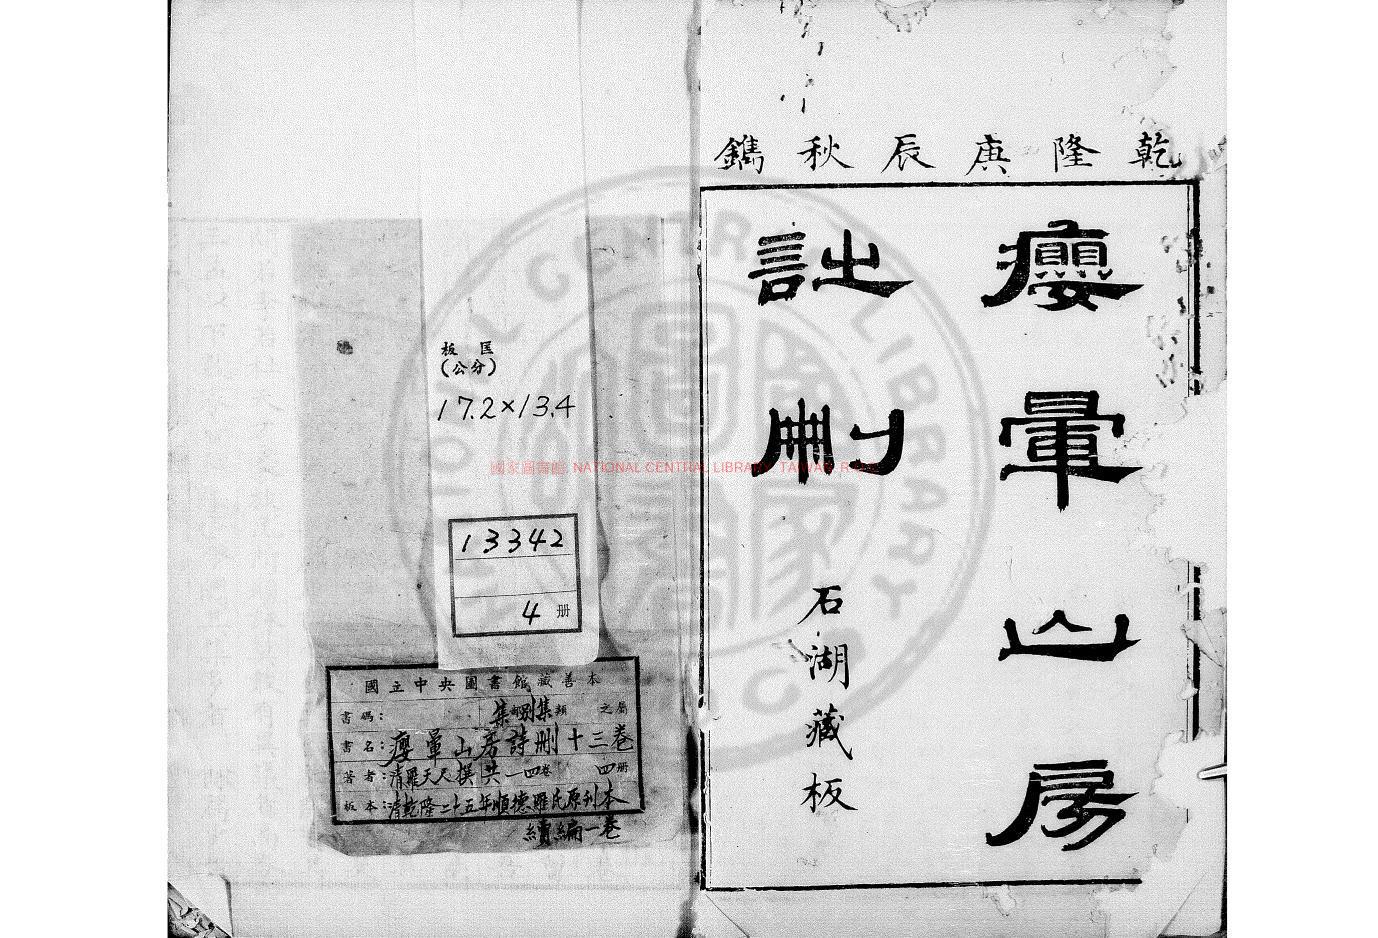 乾隆庚辰秋鐫
癭暈山房
詩刪
石湖藏板
板匡
(公分)
17.2×13.4
13342
4册
國立中央圖書館藏善本
書碼: 集部別集類 之屬
書名:癭暈山房詩刪十三卷
著者:清羅天尺撰 共一四卷 四册
板本:清乾隆二十五年順德羅氏原刊本
續編一卷
國家圖書館 NATIONAL CENTRAL LIBRARY, TAIWAN, R.O.C
NATIONAL CENTRAL LIBRARY